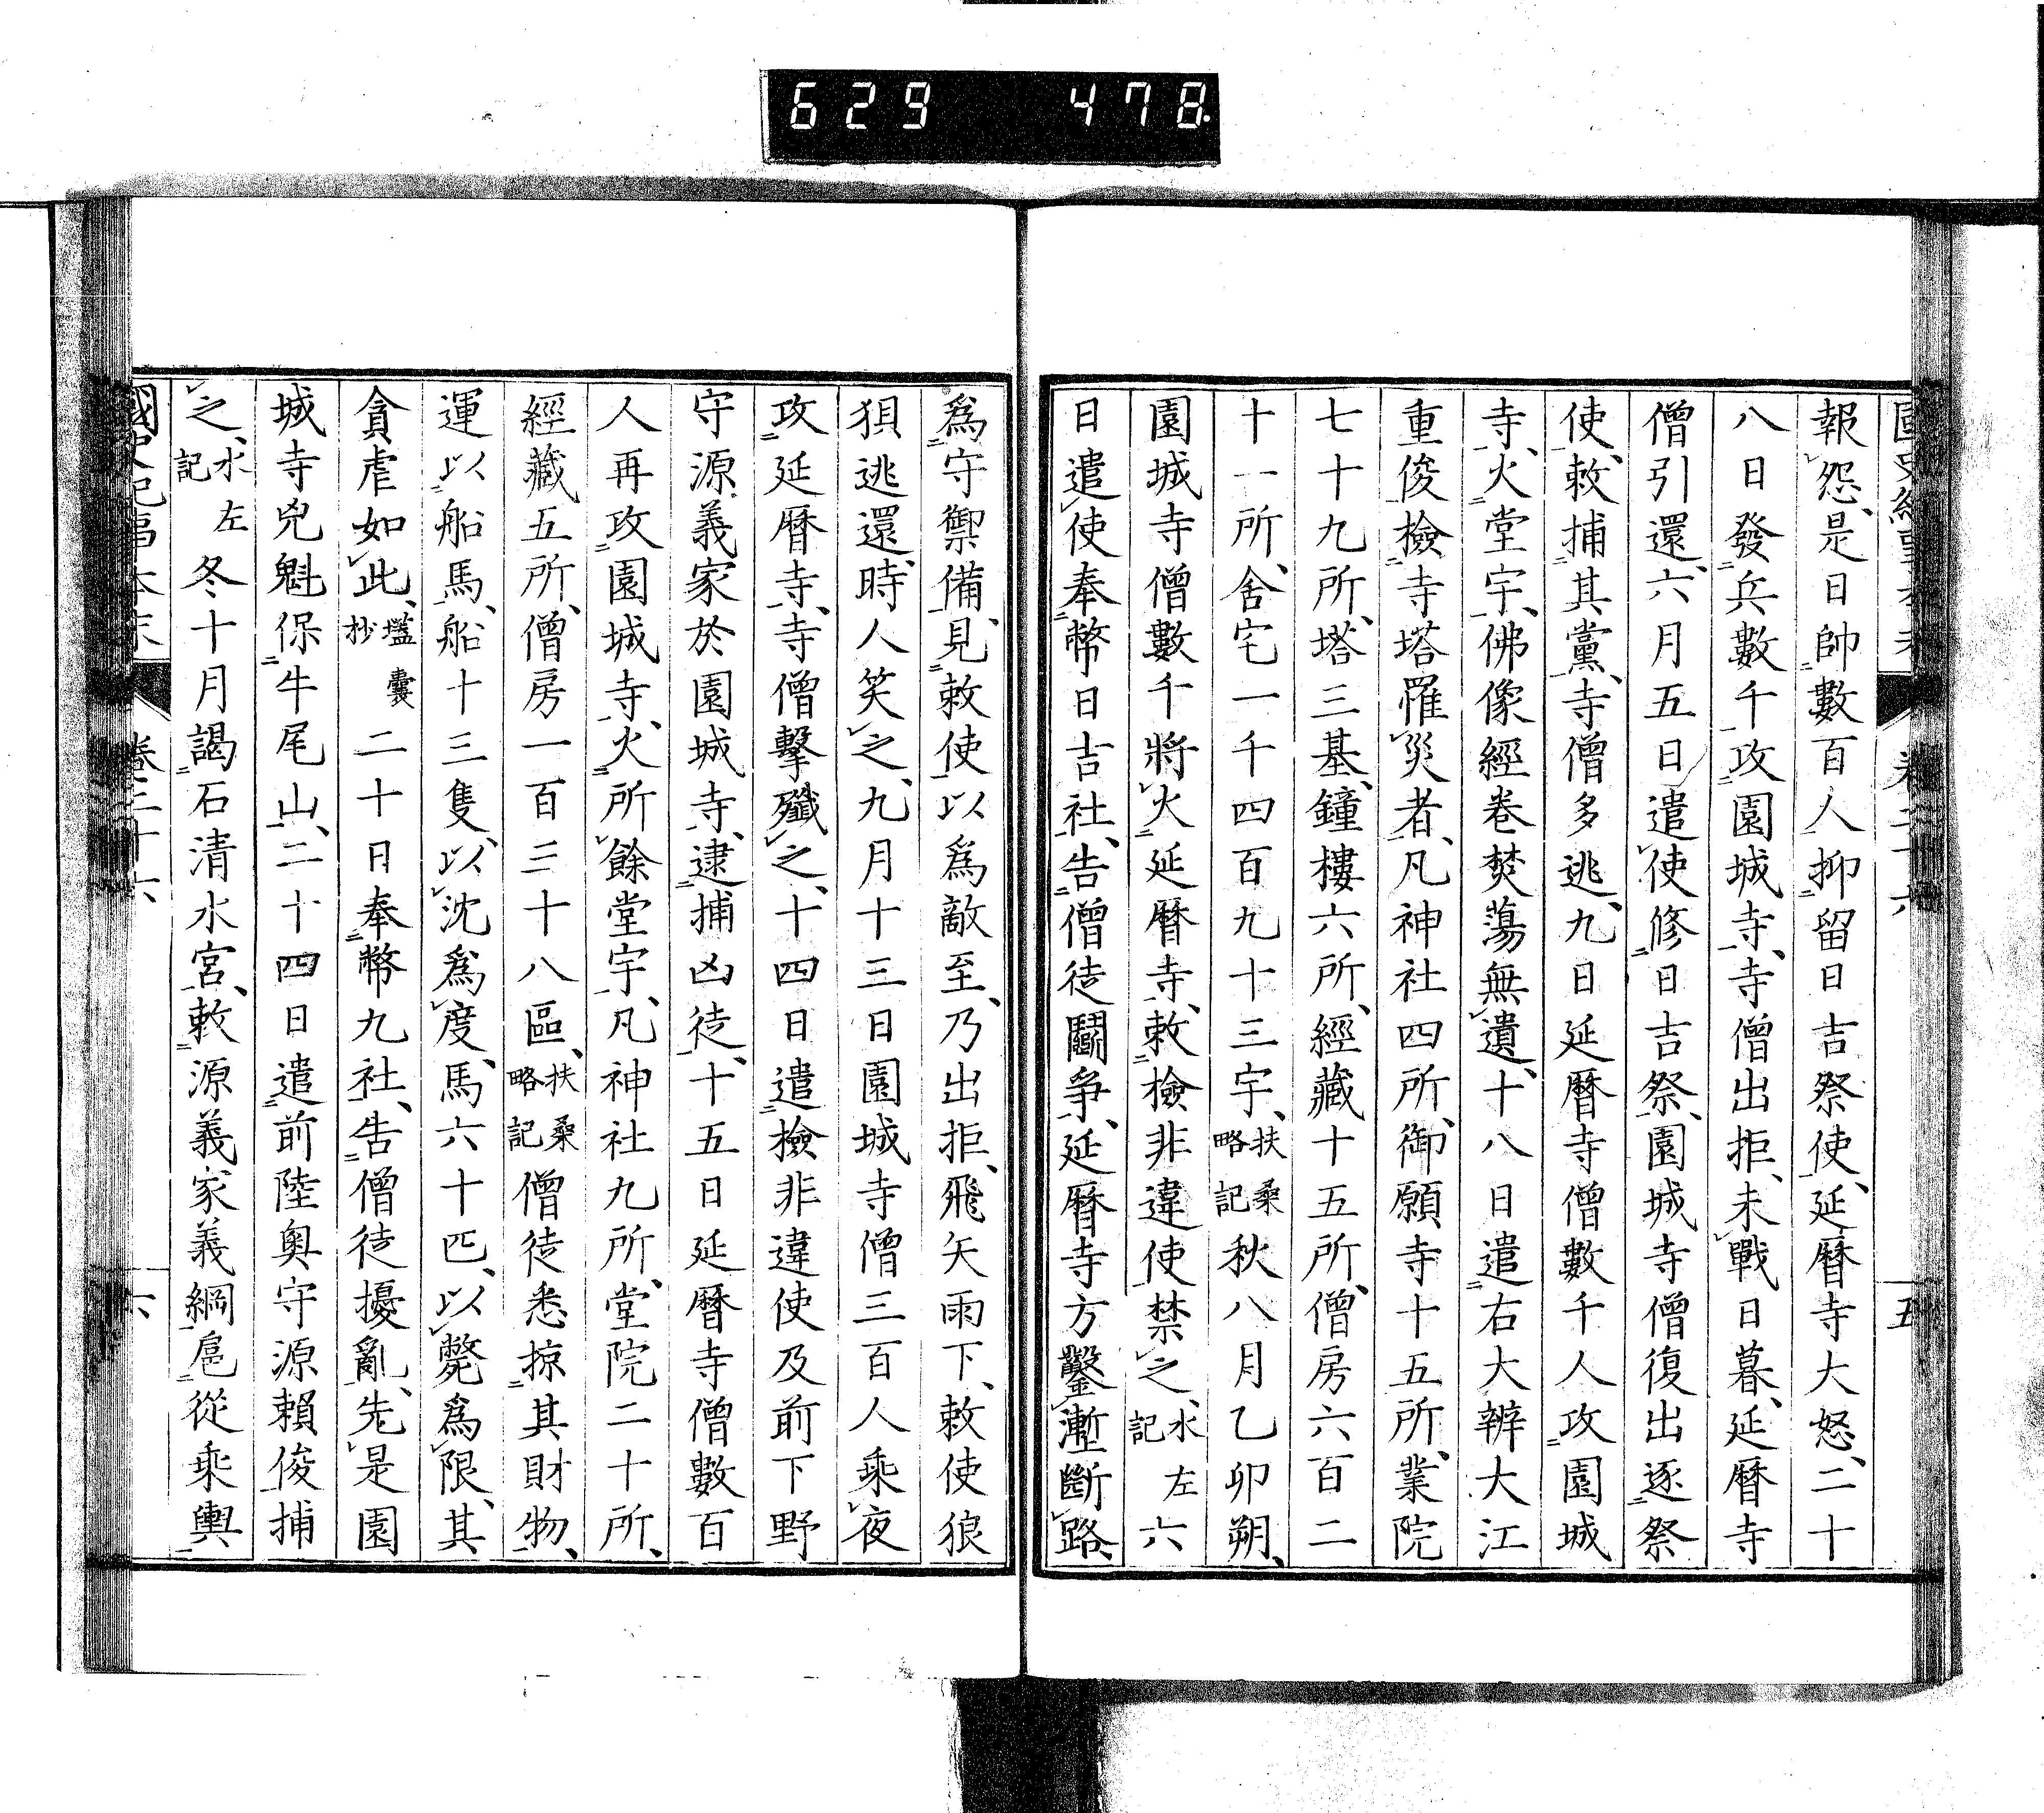 629 478
報怨、是日帥數百人抑留日吉祭使、延曆寺大怒、二十
八日發兵數千攻園城寺、寺僧出拒、未戰日暮、延曆寺
僧引還、六月五日遣使修日吉祭、園城寺僧復出逐祭
使、敕捕其黨、寺僧多逃、九日延曆寺僧數千人攻園城
寺、火堂宇、佛像經卷焚蕩無遺、十八日遣右大辨大江
重俊檢寺塔罹災者、凡神社四所、御願寺十五所、業院
七十九所、塔三基、鐘樓六所、經藏十五所、僧房六百二
十一所、舍宅一千四百九十三宇、扶桑略記秋八月乙卯朔、
園城寺僧數千將火延曆寺、敕檢非違使禁之、水左記六
日遣使奉幣日吉社、告僧徒鬪爭、延曆寺方鑿塹斷路、
爲守禦備、見敕使以爲敵至、乃出拒、飛矢雨下、敕使狼
狽逃還、時人笑之、九月十三日園城寺僧三百人乘夜
攻延曆寺、寺僧擊殲之、十四日遣檢非違使及前下野
守源義家於園城寺、逮捕凶徒、十五日延曆寺僧數百
人再攻園城寺、火所餘堂宇、凡神社九所、堂院二十所、
經藏五所、僧房一百三十八區、扶桑略記僧徒悉掠其財物、
運以船馬、船十三隻、以沈爲度、馬六十匹、以斃爲限、其
貪虐如此、壒囊抄二十日奉幣九社、告僧徒擾亂、先是園
城寺兇魁保牛尾山、二十四日遣前陸奧守源賴俊捕
之、水左記冬十月謁石清水宮、敕源義家義綱扈從乘輿
國史紀事本末 卷二十六 六